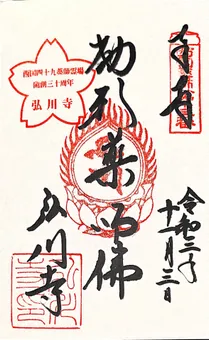 奉拝
令和二年
十一月三日
勅願薬師佛
弘川寺
西国四十九薬師霊場
開創三十周年
弘川寺